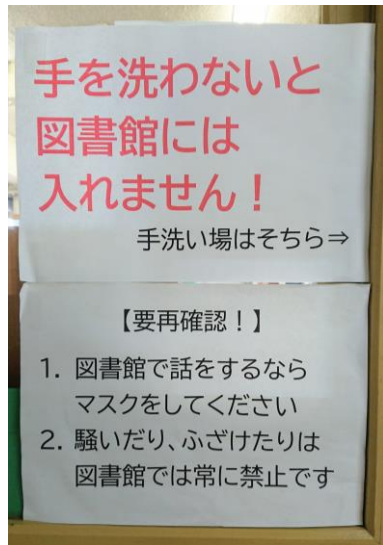 手を洗わないと
図書館には
入れません！
手洗い場はそちら⇒
【要再確認！】
1. 図書館で話をするなら
マスクをしてください
2. 騒いだり、ふざけたりは
図書館では常に禁止です